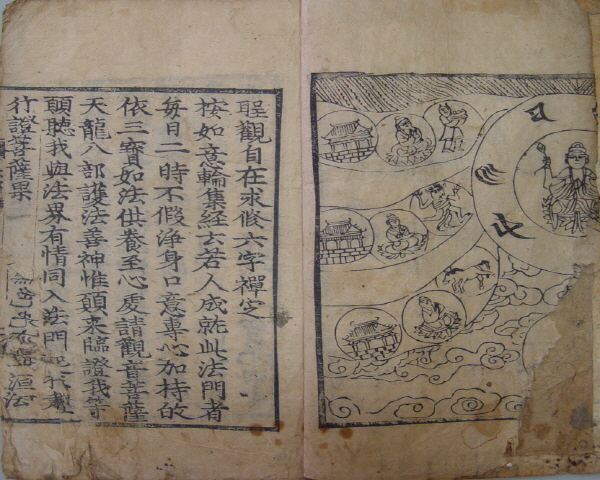 聖觀自在求修六字禪定
按如意輪集經云若人成就此法門者
每日二時不假淨身口意專心加持故
依三寶如法供養至心處請觀音菩薩
天龍八部護法善神惟願來臨證我等
願聽我與法界有情同入法門
行證菩薩果